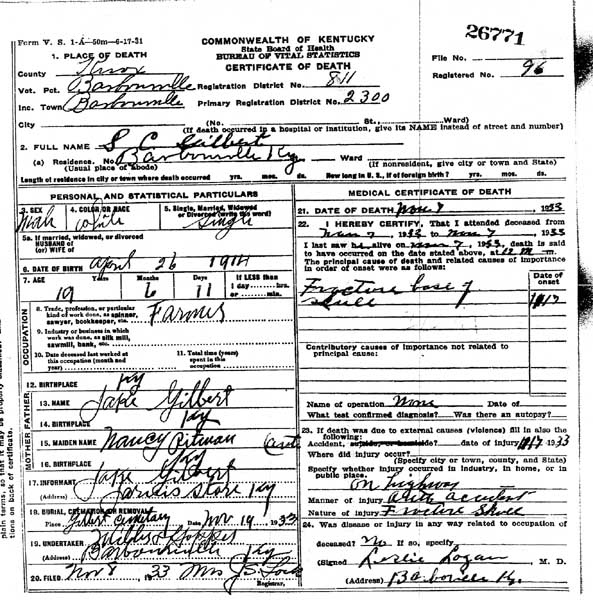 Form V. S. 1-A—50m—6-17-31
COMMONWEALTH OF KENTUCKY
State Board of Health
BUREAU OF VITAL STATISTICS
CERTIFICATE OF DEATH
26771
File No.
Registered No. 96
1. PLACE OF DEATH
County Knox
Vot. Pct. Barbourville Registration District No. 811
Inc. Town Barbourville Primary Registration District No. 2300
City (No. St., Ward)
(If death occurred in a hospital or institution, give its NAME instead of street and number)
2. FULL NAME S C Gilbert
(a) Residence. No. Barbourville Ky Ward
(Usual place of abode) (If nonresident, give city or town and State)
Length of residence in city or town where death occurred yrs. mos. ds. How long in U. S., if of foreign birth? yrs. mos. ds.
PERSONAL AND STATISTICAL PARTICULARS
3. SEX Male
4. COLOR OR RACE White
5. Single, Married, Widowed or Divorced (write the word) Single
5a. If married, widowed, or divorced
HUSBAND of
(or) WIFE of
6. DATE OF BIRTH April 26 1914
7. AGE Years Months Days If LESS than
1 day hrs.
or min.
19 6 11
OCCUPATION
8. Trade, profession, or particular kind of work done, as spinner, sawyer, bookkeeper, etc. Farmer
9. Industry or business in which work was done, as silk mill, sawmill, bank, etc.
10. Date deceased last worked at this occupation (month and year)
11. Total time (years) spent in this occupation
12. BIRTHPLACE Ky
FATHER
13. NAME Jake Gilbert
14. BIRTHPLACE Ky
MOTHER
15. MAIDEN NAME Nancy Pitman
16. BIRTHPLACE Ky
17. INFORMANT Jake Gilbert
(Address) Jarvis Store Ky
18. BURIAL, CREMATION OR REMOVAL
Place Gilbert Cemetary Date Nov 19 1933
19. UNDERTAKER
(Address) Barbourville Ky
20. FILED Nov 8 33 Mrs J S Lock
Registrar.
MEDICAL CERTIFICATE OF DEATH
21. DATE OF DEATH Nov 7, 1933
22. I HEREBY CERTIFY, That I attended deceased from
Nov 7, 1933 to Nov 7, 1933
I last saw he alive on Nov 7, 1933, death is said
to have occurred on the date stated above, at 12 M m.
The principal cause of death and related causes of importance
in order of onset were as follows:
Date of onset
Fracture base of
skull 11/7
Contributory causes of importance not related to
principal cause:
Name of operation None Date of
What test confirmed diagnosis? Was there an autopsy?
23. If death was due to external causes (violence) fill in also the
following:
Accident, suicide, or homicide? date of injury 11/7 1933
Where did injury occur?
(Specify city or town, county, and State)
Specify whether injury occurred in industry, in home, or in
public place.
on highway
Manner of injury Auto accident
Nature of injury Fracture Skull
24. Was disease or injury in any way related to occupation of
deceased? No If so, specify
(Signed Leslie Logan, M. D.
(Address) Barbourville Ky.
plain terms, so that it may be properly
tions on back of certificate.